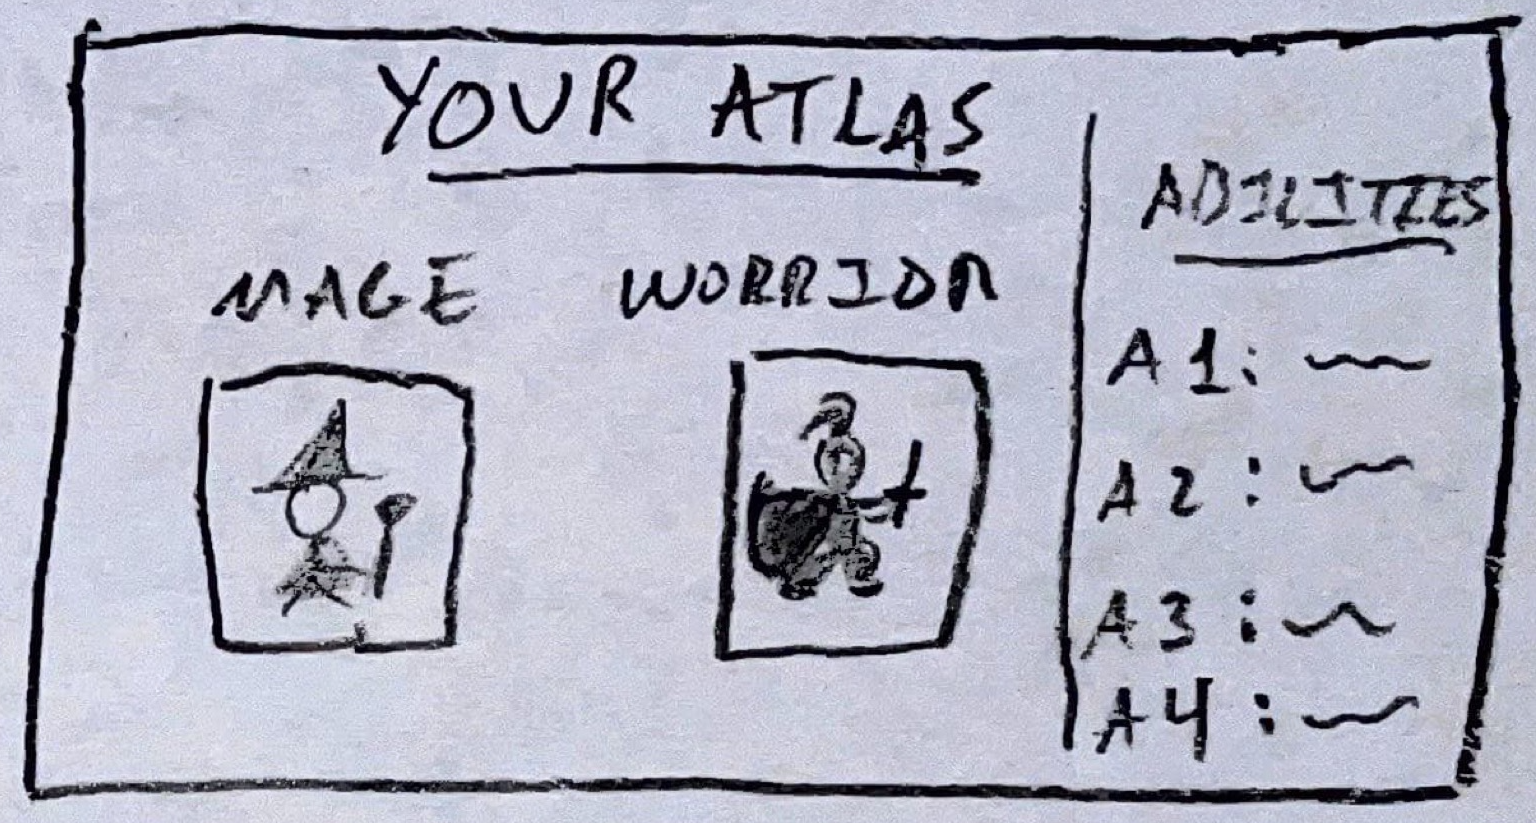 YOUR ATLAS
MAGE
WORRIOR
ABILITIES
A1:
A2:
A3:
A4: